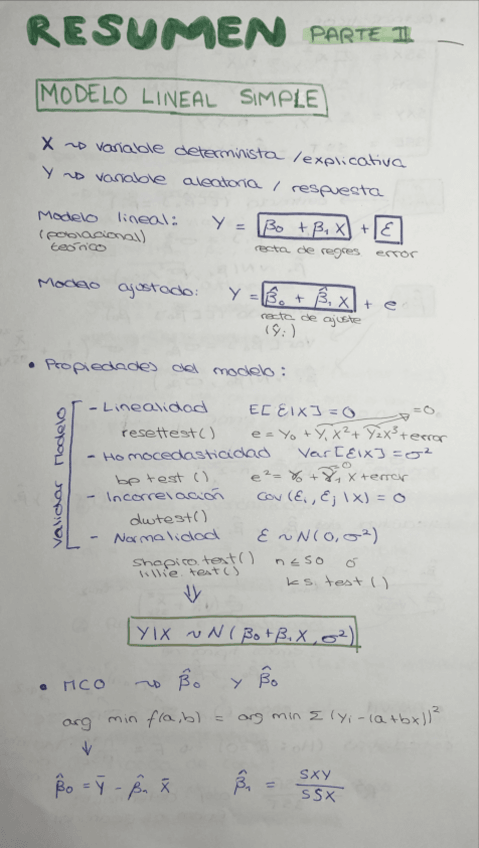 RESUMEN PARTE II
MODELO LINEAL SIMPLE
X ~> variable determinista / explicativa
Y ~> variable aleatoria / respuesta
Modelo lineal: Y = β₀ + β₁ X + ε
(poblacional) recta de regres error
teórico
Modelo ajustado: Y = β̂₀ + β̂₁ X + e
recta de ajuste
(ŷᵢ)
• Propiedades del modelo:
Validar Modelo
- Linealidad E[ε|X] = 0 =0
resettest() e = γ₀ + γ₁X² + γ₂X³ + error
- Homocedasticidad Var[ε|X] = σ²
bptest() e² = γ₀ + γ₁X + error =0
- Incorrelación Cov(εᵢ, εⱼ|X) = 0
dwtest()
- Normalidad ε ~ N(0, σ²)
shapiro.test() n ≤ 50 ó
lillie.test() ks.test()
⇓
Y|X ~ N(β₀ + β₁X, σ²)
• MCO ~> β̂₀ y β̂₀
arg min f(a,b) = arg min Σ(yᵢ - (a+bx))²
↓
β̂₀ = Ȳ - β̂₁ X̄ β̂₁ = SXY / SSX